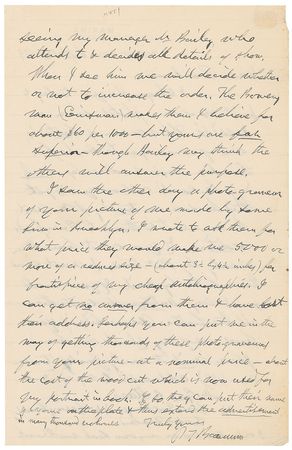 seeing my manager Mr Bailey who
attends to & decides all details of show.
When I see him we will decide whether
or not to increase the order. The Bowery
man (Eisenmann) makes them I believe for
about $60 per 1000 - but yours are far
superior - though Bailey may think the
others will answer the purpose.
I saw the other day a photogravure
of your picture of me made by some
firm in Brooklyn. I wrote to ask them for
what price they would make me 5000 or
more of a reduced size - (about 3½ by 4½ inches) for
frontispiece of my cheap autobiographies. I
can get no answer from them & have lost
their address. Perhaps you can put me in the
way of getting thousands of these photogravures
from your picture - at a nominal price - about
the cost of the wood cut which is now used for
my portrait in book. If so they can put their name
& yours on the plate & thus extend the advertisement
in many thousand
Truly yours
P. T. Barnum